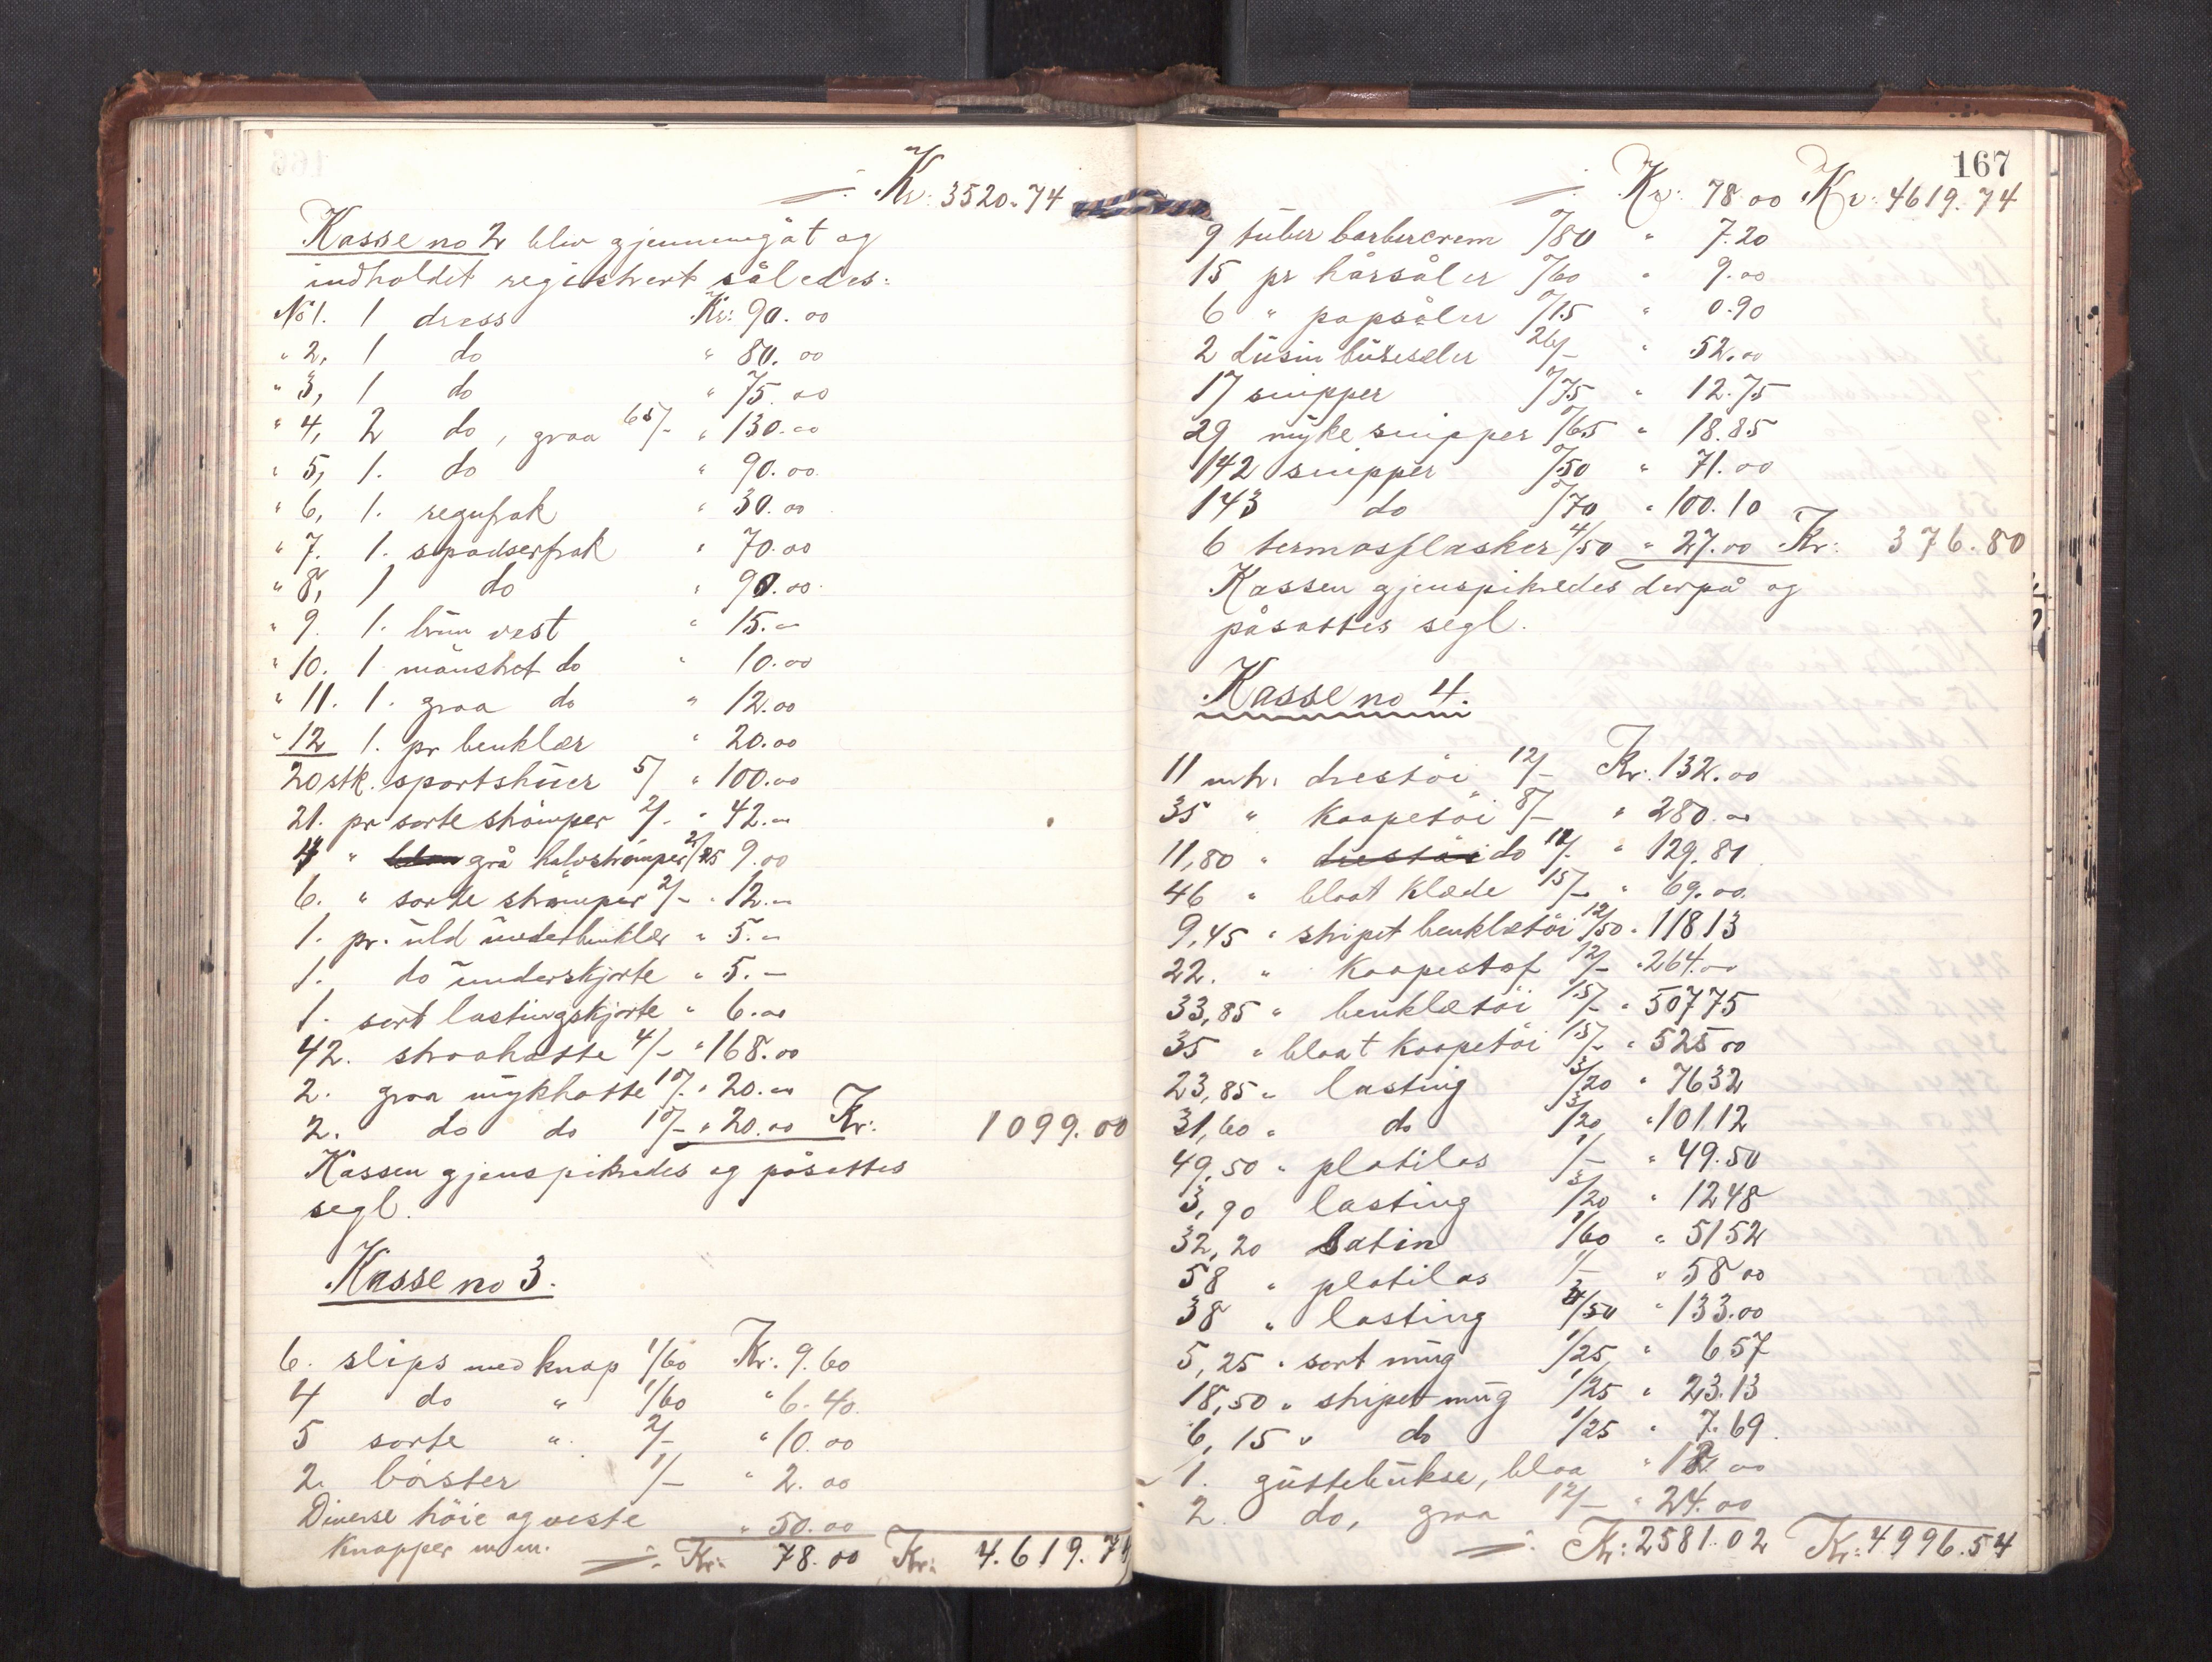 ÷ Kr: 3520.74
Kasse no 2 blev gjennemgåt og
indholdet registrert således:
No 1. 1 dress Kr: 90.00
" 2, 1 do " 80.00
" 3, 1 do " 75.00
" 4, 2 do, graa 65/- " 130.00
" 5, 1. do " 90.00
" 6, 1. regnfrak " 30.00
" 7. 1. spadserfrak " 70.00
" 8, 1 do " 90.00
" 9. 1. brun vest " 15.00
" 10. 1 mansket do " 10.00
" 11. 1. graa do " 12.00
" 12 1. pr benklær " 20.00
20 stk. sportshuer 5/ " 100.00
21. pr sorte strømper 2/- " 42.00
4 " grå halvstrømper 2/25 9.00
6. " sorte strømper 2/- " 12.00
1. pr. uld underbenklær " 5.-
1. do underskjorte " 5.-
1. sort lastingskjorte " 6.00
42. straahatte 4/- " 168.00
2. graa mykhatte 10/- " 20.00
2. do do 10/- " 20.00 Kr: 1099.00
Kassen gjenspikredes og påsattes
segl.
Kasse no 3.
6. slips med knap 1/60 Kr: 9.60
4 do " 1/60 " 6.40.
5 sorte " 2/- " 10.00
2. børster 1/- " 2.00
Diverse høie og veste
knapper m.m. " 50.00
÷ Kr: 78.00 Kr: 4.619.74
167
÷ Kr: 78.00 Kr: 4619.74
9 tuber barbercrem 0/80 " 7.20
15 pr hårsåler 0/60 " 9.00
6 " papsåler 0/15 " 0.90
2 dusin bukseseler 26/- " 52.00
17 snipper 0/75 " 12.75
29 myke snipper 0/65 " 18.85
142 snipper 0/50 " 71.00
143 do 0/70 " 100.10
6 termosflasker 4/50 " 27.00 Kr: 376.80
Kassen gjenspikredes derpå og
påsattes segl.
Kasse no 4.
11 mtr. drestöi 12/- Kr: 132.00
35 " kaapetöi 8/- " 280.00
11,80 " drestöi do 11/- " 129.80
46 " blaat klæde 15/- " 69.00
9,45 " stripet benklætöi 12/50 " 118 13
22. " Kaapestof 12/- " 264.00
33,85 " benklætöi 15/- " 507 75
35 " blaat kaapetöi 15/- " 525 00
23,85 " lasting 3/20 " 76 32
31,60 " do 3/20 " 101 12
49,50 " platilas 1/- " 49.50
3,90 lasting 3/20 " 12 48
32,20 Satin 1/60 " 51 52
58 " platilas 1/- " 58 00
38 " lasting 3/50 " 133.00
5,25 " sort mug 1/25 " 6 57
18,50 " stripet mug 1/25 " 23.13
6,15 " do 1/25 " 7.69
1. guttebukse, blaa " 12 00
2. do, graa 12/- " 24.00
÷ Kr: 2581.02 Kr: 4996.54